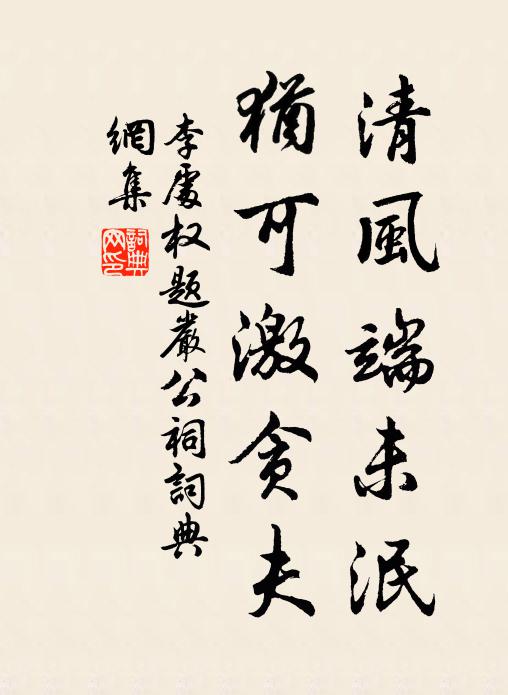 清風端未泯
猶可激貪夫
李處权題嚴公祠詞典
網集
詞典
网印